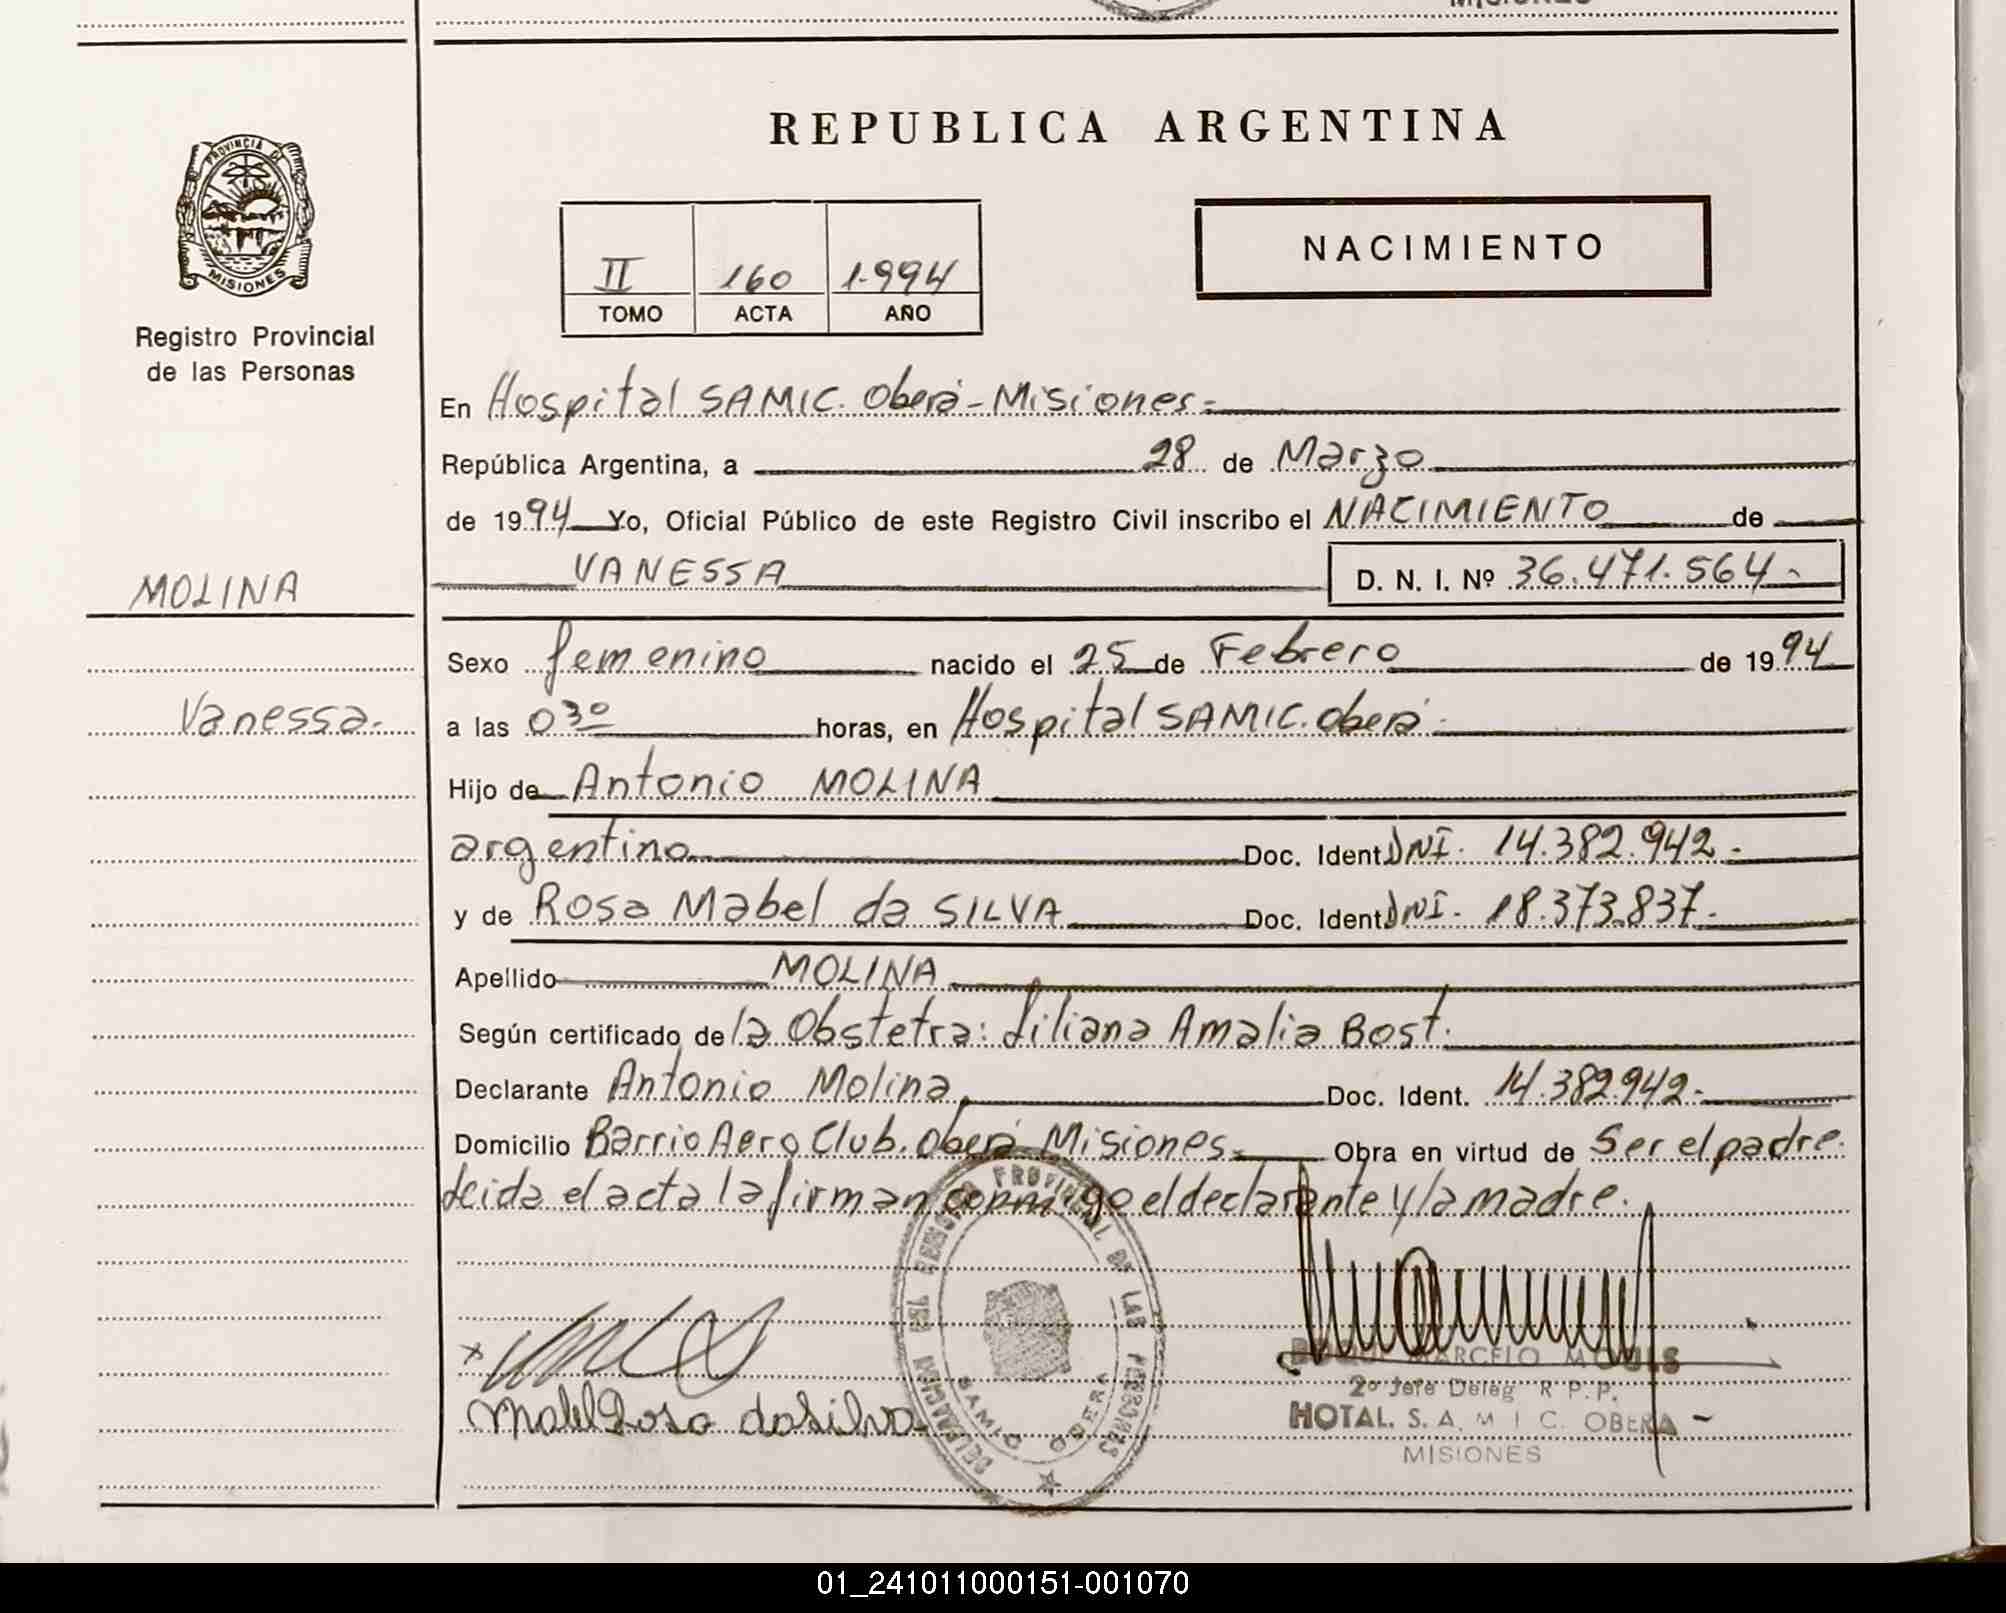 MISIONES
REPUBLICA ARGENTINA
PROVINCIA DE
MISIONES
Registro Provincial
de las Personas
II 160 1.994
TOMO ACTA AÑO
NACIMIENTO
En Hospital SAMIC. Oberá - Misiones -
República Argentina, a 28 de Marzo
de 1994 Yo, Oficial Público de este Registro Civil inscribo el NACIMIENTO de
MOLINA
VANESSA D. N. I. Nº 36.471.564-
Sexo femenino nacido el 25 de Febrero de 1994
Vanessa.
a las 0 30 horas, en Hospital SAMIC. Oberá -
Hijo de Antonio MOLINA
argentino Doc. Ident. DNI. 14.382.942.-
y de Rosa Mabel da SILVA Doc. Ident. DNI. 18.373.837.-
Apellido MOLINA
Según certificado de la Obstetra: Liliana Amalia Bost.
Declarante Antonio Molina Doc. Ident. 14.382.942-
Domicilio Barrio Aero Club. Oberá Misiones. Obra en virtud de Ser el padre.
Leida el acta la firman conmigo el declarante y la madre.
DELEGACION REGISTRO PROVINCIAL DE LAS PERSONAS
SAMIC OBERA
Mabel Rosa da Silva
MARCELO
2º Jefe Deleg R. P. P.
HOTAL. S. A. M I C. OBERA -
MISIONES
01_241011000151-001070